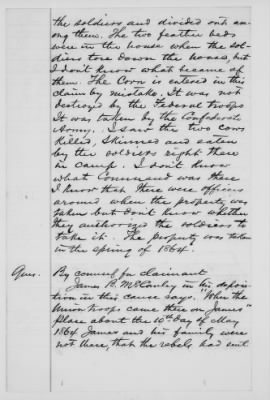 the soldiers and divided out am-
ong them. The two feather beds
were in the house when the sol-
diers tore down the house, but
I don't know what became of
them. The Corn is entered in this
claim by mistake. It was not
destroyed by the Federal troops
It was taken by the Confederate
Army. I saw the two cows
killed, skinned and eaten
by the soldiers right there
in camp. I don't know
what command was there
I know that there were officers
around when the property was
taken but don't know whether
they authorized the soldiers to
take it. The property was taken
in the spring of 1864.
Ques. By counsel for claimant
James B. McCauley in his deposi-
tion in this cause says. "When the
Union troops came there on James'
place about the 10th day of May
1864 James and his family were
not there, that the rebels had sent